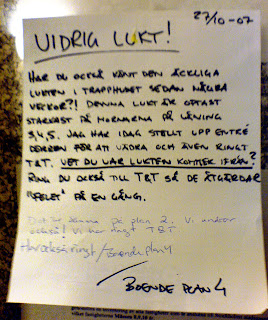 27/10-07
VIDRIG LUKT!
HAR DU OCKSÅ KÄNT DEN ÄCKLIGA
LUKTEN I TRAPPHUSET SEDAN NÅGRA
VECKOR?! DENNA LUKT ÄR OFTAST
STARKAST PÅ MORNARNA PÅ VÅNING
3,4,5. JAG HAR IDAG STELLT UPP ENTRÉ
DÖRREN FÖR ATT VÄDRA OCH ÄVEN RINGT
T&T. VET DU VAR LUKTEN KOMMER IFRÅN?
RING DU OCKSÅ TILL T&T SÅ DE ÅTGÄRDAR
"FELET" PÅ EN GÅNG.
samma på plan 2. Vi undrar
också! Vi har ringt T&T
Har också ringt / Boende plan 4
/ BOENDE PLAN 4